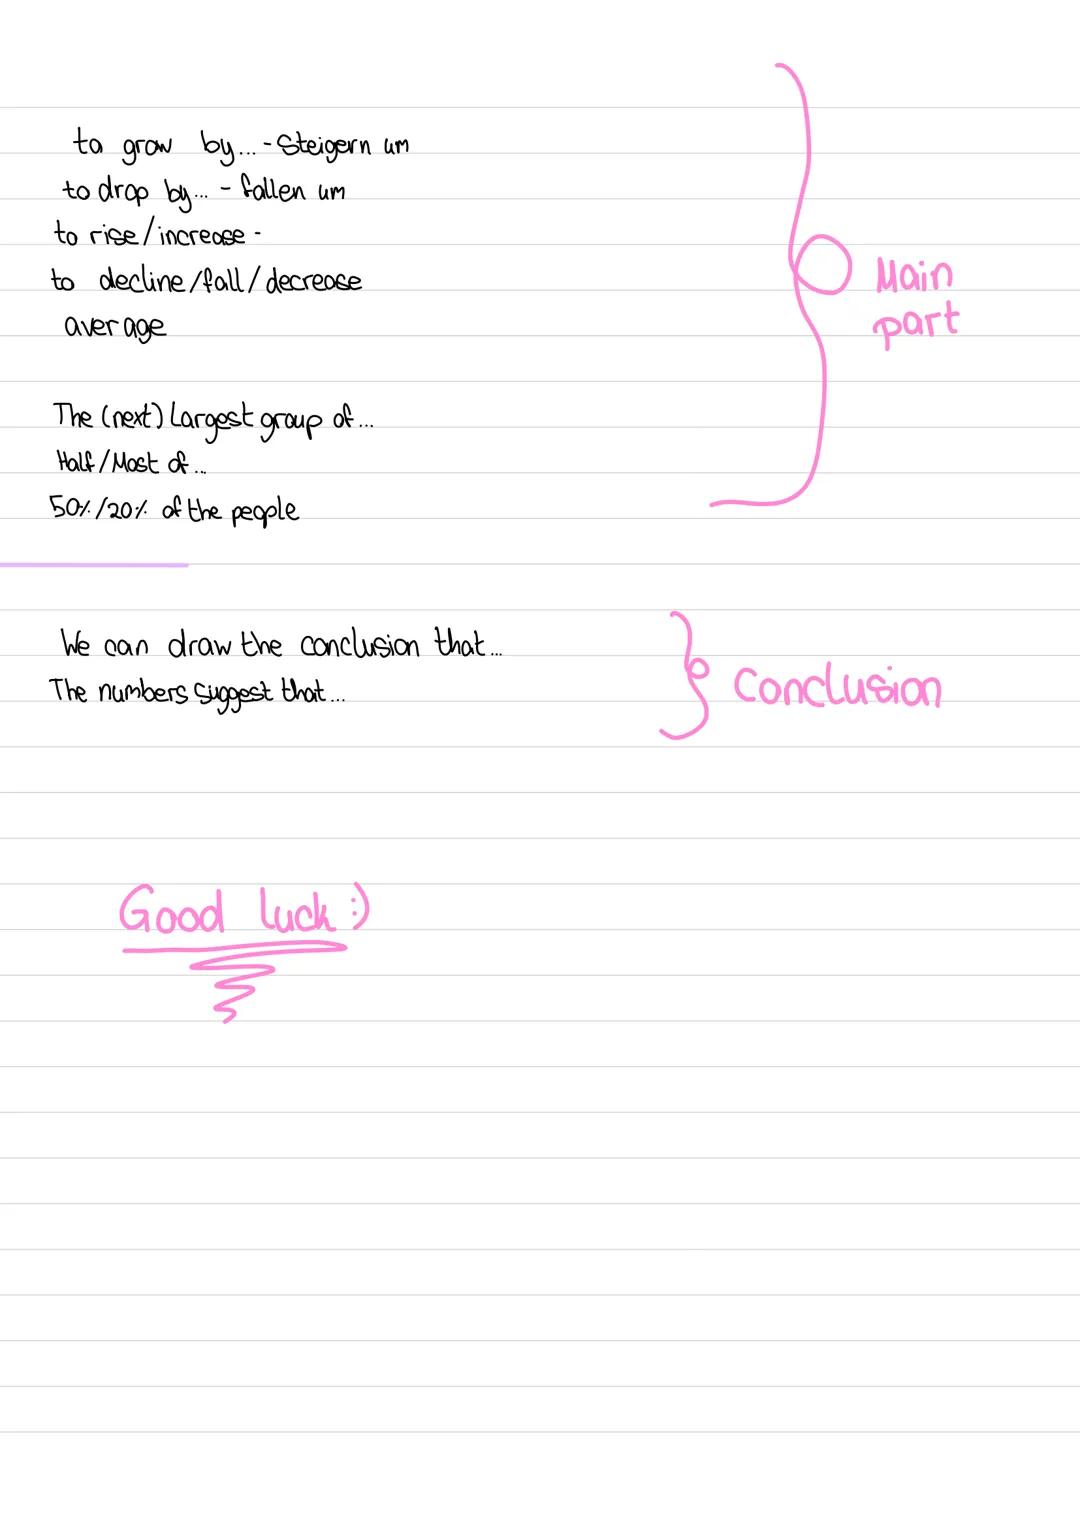 to grow by... - Steigern um
to drop by... - fallen um
to rise/increase -
to decline/fall/decrease
average
Main
part
The (next) Largest group of...
Half/Most of...
50%/20% of the people
We can draw the conclusion that...
The numbers suggest that...
Conclusion
Good luck :)